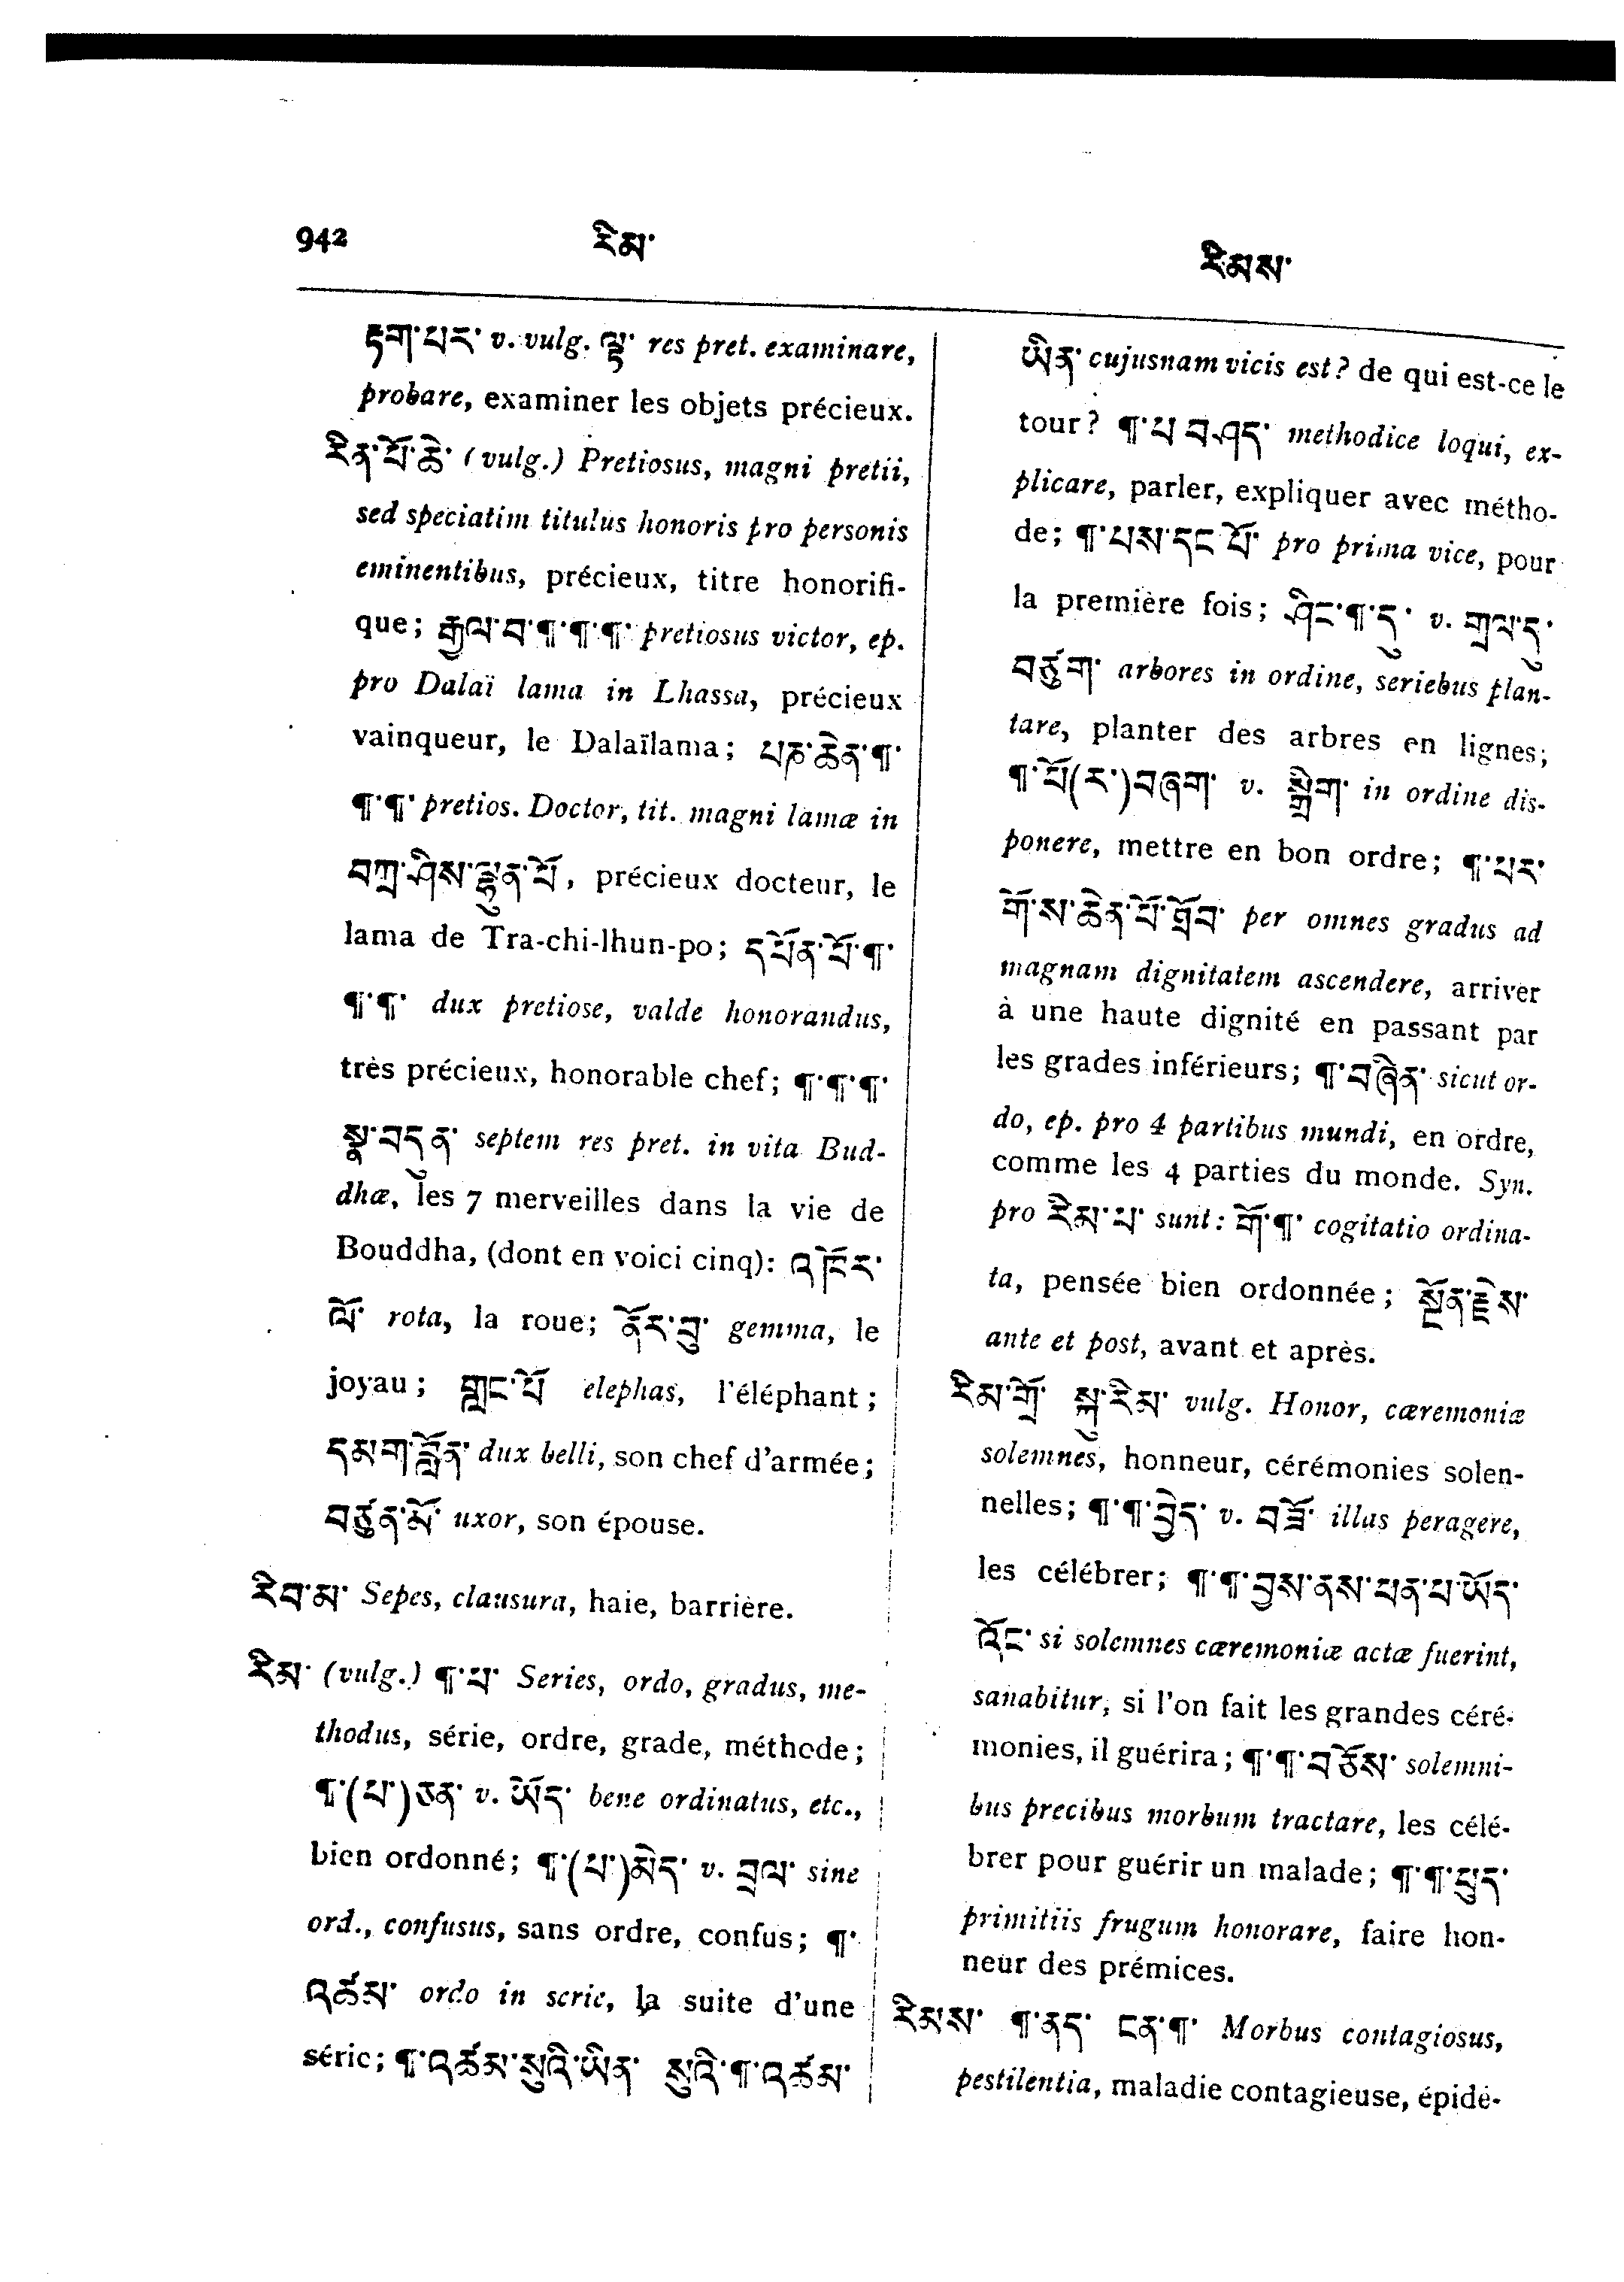 942 རིམ་ རིམས་
རྟག་པར་ v. vulg. ལྟ་ res pret. examinare,
probare, examiner les objets précieux.
རིན་པོ་ཆེ་ (vulg.) Pretiosus, magni pretii,
sed speciatim titulus honoris pro personis
eminentibus, précieux, titre honorifi-
que; རྒྱལ་བ་¶་¶་¶་ pretiosus victor, ep.
pro Dalaï lama in Lhassa, précieux
vainqueur, le Dalaïlama; པཎ་ཆེན་¶་
¶་¶་ pretios. Doctor, tit. magni lamæ in
བཀྲ་ཤིས་ལྷུན་པོ, précieux docteur, le
lama de Tra-chi-lhun-po; དཔོན་པོ་¶་
¶་¶་ dux pretiose, valde honorandus,
très précieux, honorable chef; ¶་¶་¶་
སྣ་བདུན་ septem res pret. in vita Bud-
dhæ, les 7 merveilles dans la vie de
Bouddha, (dont en voici cinq): འཁོར་
ལོ་ rota, la roue; ནོར་བུ་ gemma, le
joyau; གླང་པོ elephas, l'éléphant;
དམག་བློན་ dux belli, son chef d'armée;
བཙུན་མོ་ uxor, son épouse.
རིབ་མ་ Sepes, clausura, haie, barrière.
རིམ་ (vulg.) ¶་པ་ Series, ordo, gradus, me-
thodus, série, ordre, grade, méthode;
¶་(པ་)ཅན་ v. ཡོད་ bene ordinatus, etc.,
bien ordonné; ¶་(པ་)མེད་ v. བྲལ་ sine
ord., confusus, sans ordre, confus; ¶་
འཚམ་ ordo in serie, la suite d'une
série; ¶་འཚམ་སུའི་ཡིན་ སུའི་¶་འཚམ་
ཡིན་ cujusnam vicis est? de qui est-ce le
tour? ¶་པ་བཤད་ methodice loqui, ex-
plicare, parler, expliquer avec métho-
de; ¶་པས་དང་པོ་ pro prima vice, pour
la première fois; ཤིང་¶་དུ་ v. གྲལ་དུ་
བཙུག་ arbores in ordine, seriebus plan-
tare, planter des arbres en lignes;
¶་པོ(ར་)བཞག་ v. སྒྲིག་ in ordine dis-
ponere, mettre en bon ordre; ¶་པར་
གོ་ས་ཆེན་པོ་ཐོབ་ per omnes gradus ad
magnam dignitatem ascendere, arriver
à une haute dignité en passant par
les grades inférieurs; ¶་བཞིན་ sicut or-
do, ep. pro 4 partibus mundi, en ordre,
comme les 4 parties du monde. Syn.
pro རིམ་པ་ sunt: གོ་¶་ cogitatio ordina-
ta, pensée bien ordonnée; སྔོན་རྗེས་
ante et post, avant et après.
རིམ་གྲོ་ སྐུ་རིམ་ vulg. Honor, cæremoniæ
solemnes, honneur, cérémonies solen-
nelles; ¶་¶་བྱེད་ v. བཟོ་ illas peragere,
les célébrer; ¶་¶་བྱས་ནས་ཕན་པ་ཡོད་
འོང་ si solemnes cæremoniæ actæ fuerint,
sanabitur, si l'on fait les grandes céré-
monies, il guérira; ¶་¶་བཅོས་ solemni-
bus precibus morbum tractare, les célé-
brer pour guérir un malade; ¶་¶་ཕུད་
primitiis frugum honorare, faire hon-
neur des prémices.
རིམས་ ¶་ནད་ ངན་¶་ Morbus contagiosus,
pestilentia, maladie contagieuse, épidé-